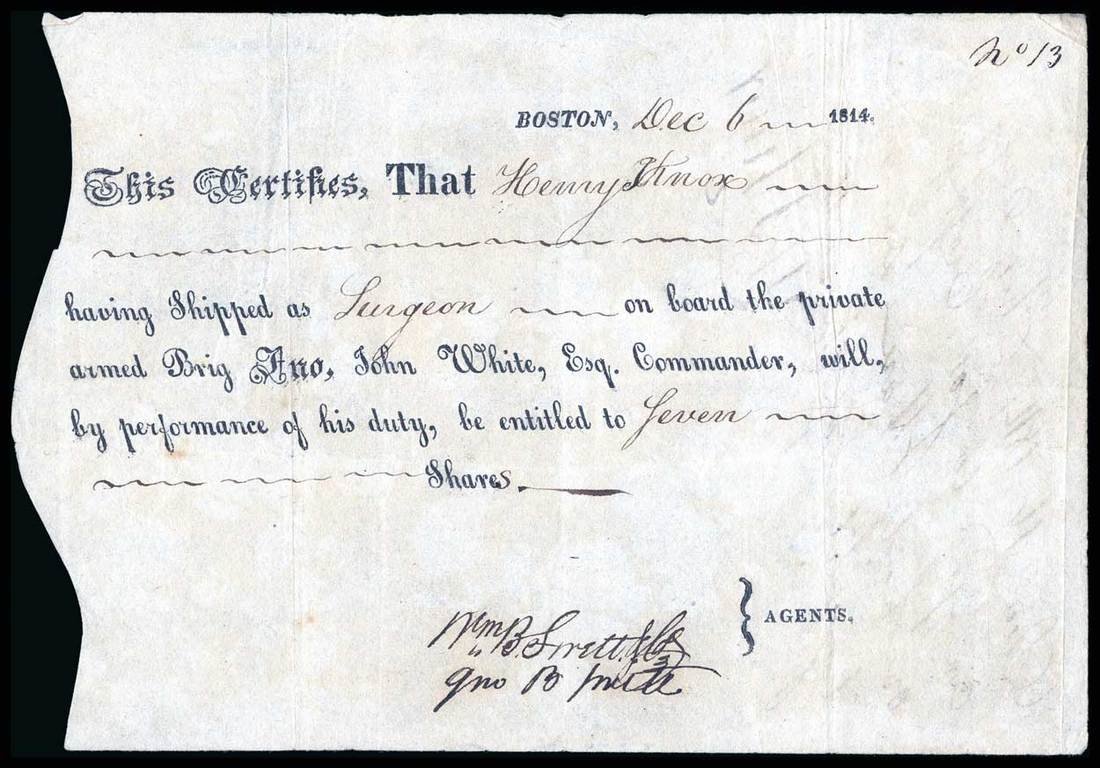 No 13
BOSTON, Dec 6 1814.
This Certifies, That Henry Knox
having Shipped as Surgeon on board the private
armed Brig Ino, John White, Esq. Commander, will,
by performance of his duty, be entitled to Seven
Shares.
AGENTS.
Wm B. Swett & Co
Jno B